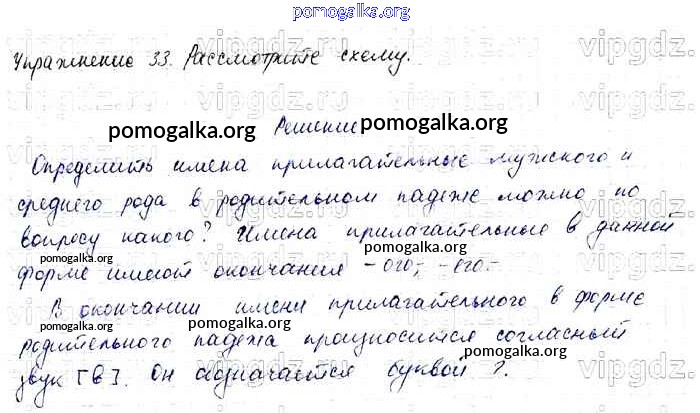 pomogalka.org
Упражнение 33. Рассмотрите схему.
vipgdz.ru vipgdz.
pomogalka.org Решение pomogalka.org
Определить имена прилагательные мужского и
среднего рода в родительном падеже можно по
вопросу какого? Имена прилагательные в данной
pomogalka.org pomogalka.org
форме имеют окончания -ого-, -его-
В окончании имени прилагательного в форме
pomogalka.org pomogalka.org
родительного падежа произносится согласный
pomogalka.org
звук [в]. Он обозначается буквой г.